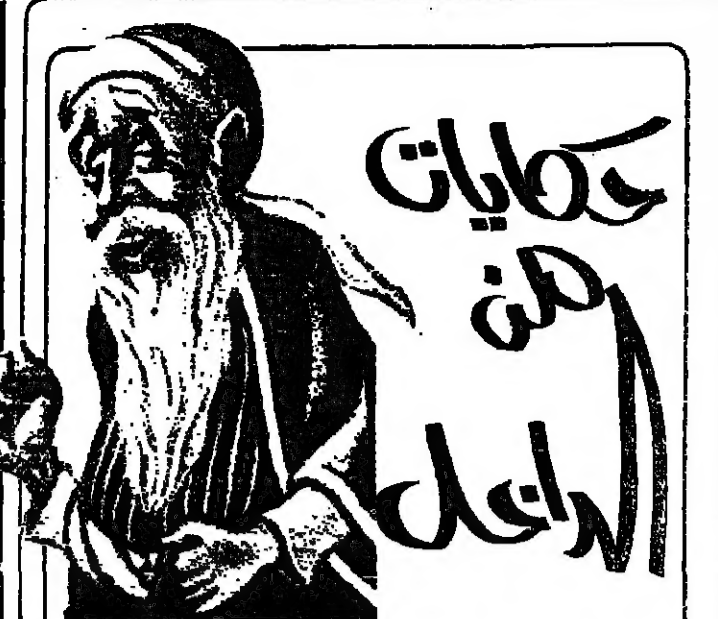 حكايات
من
الداخل